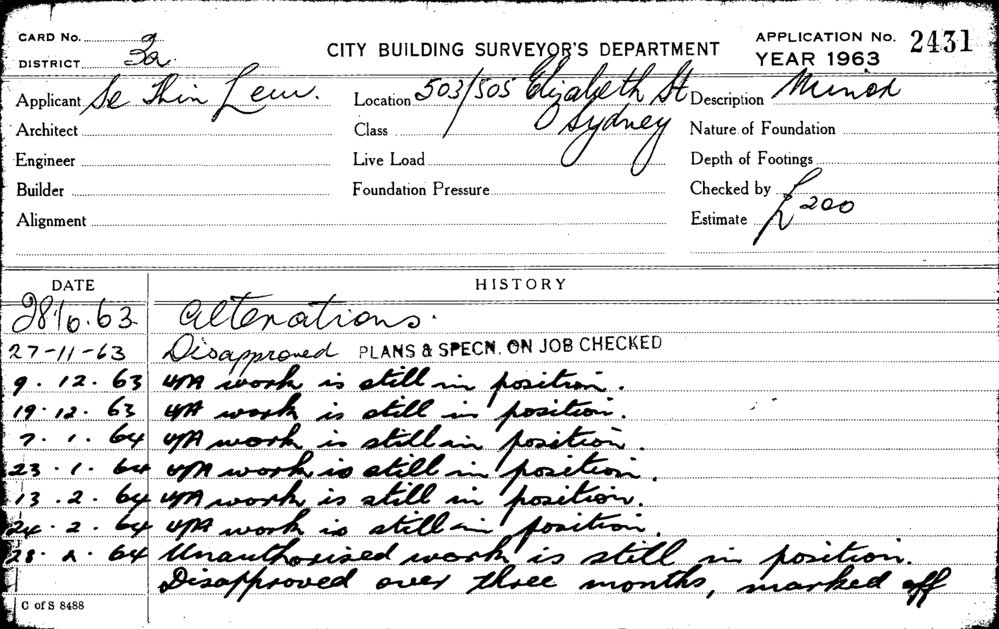 CARD No.
DISTRICT 3a
CITY BUILDING SURVEYOR'S DEPARTMENT
APPLICATION No. 2431
YEAR 1963
Applicant Se Thin Lew.
Location 503/505 Elizabeth St Sydney
Description Minor
Architect
Class
Nature of Foundation
Engineer
Live Load
Depth of Footings
Builder
Foundation Pressure
Checked by
Alignment
Estimate £200
DATE HISTORY
Alterations.
27-11-63 Disapproved PLANS & SPECN. ON JOB CHECKED
9.12.63 U/A work is still in position.
19.12.63 U/A work is still in position.
7.1.64 U/A work is still in position.
23.1.64 U/A work is still in position.
13.2.64 U/A work is still in position.
24.2.64 U/A work is still in position.
28.2.64 Unauthorised work is still in position.
Disapproved over three months, marked off
C of S 8488